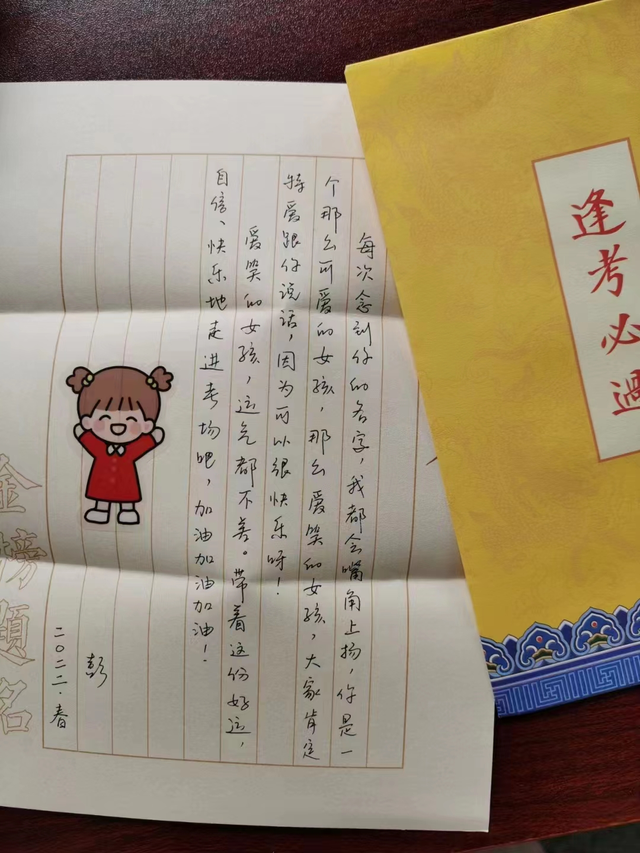 逢考必過
每次念到你的名字，我都会嘴角上扬，你是一
个那么可爱的女孩，那么爱笑的女孩，大家肯定
特爱跟你说话，因为可以很快乐呀！
爱笑的女孩，运气都不差。带着这份好运，
自信、快乐地走进考场吧，加油加油加油！
彭
二〇二二·春
金榜題名